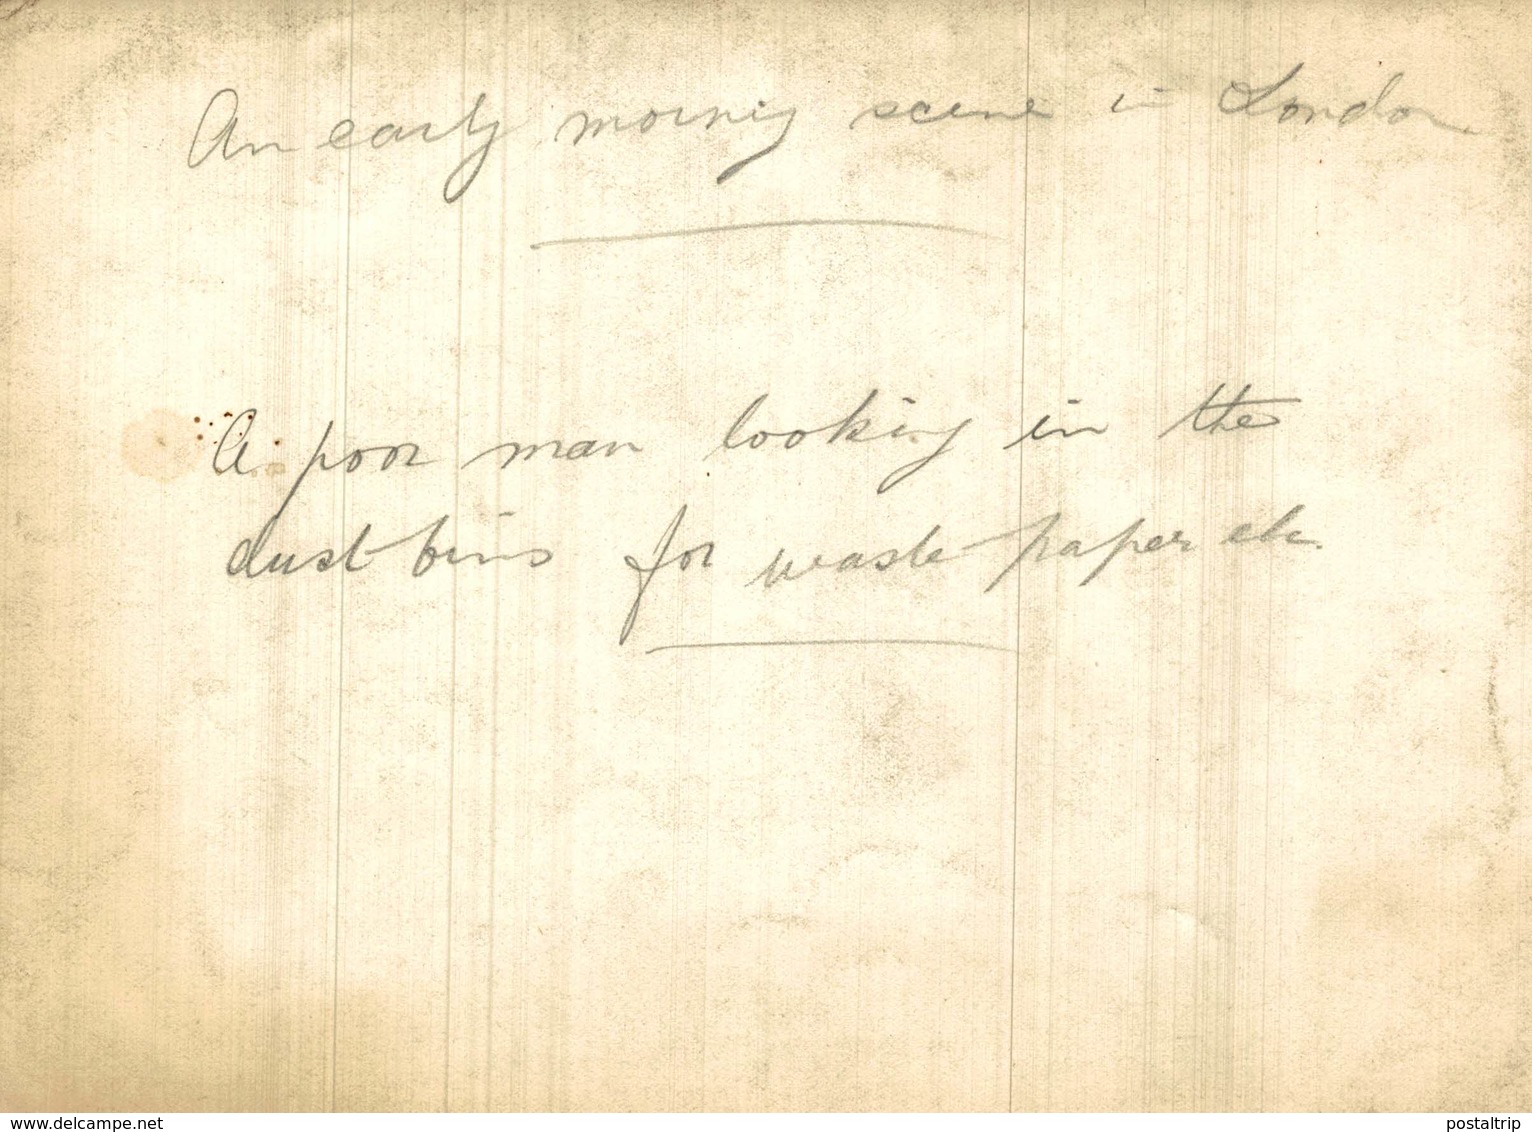 An early morning scene in London.
A poor man looking in the
dust bins for waste paper etc.
www.delcampe.net
postaltrip